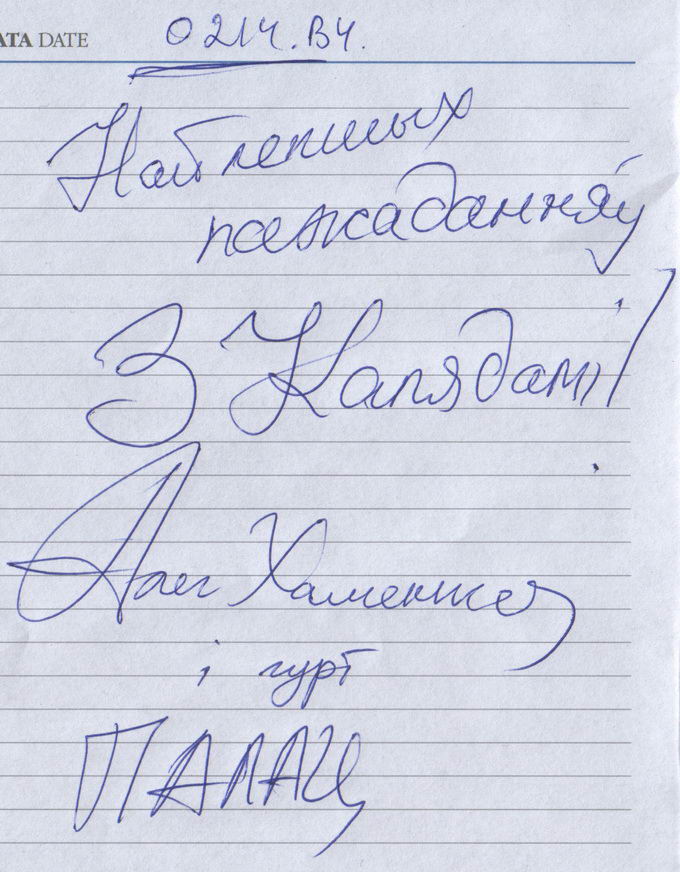 ATA DATE 0214.BY.
Найлепшых
пажаданняў
З Калядамі!
Алег Хаменка
і гурт
ПАЛАЦ